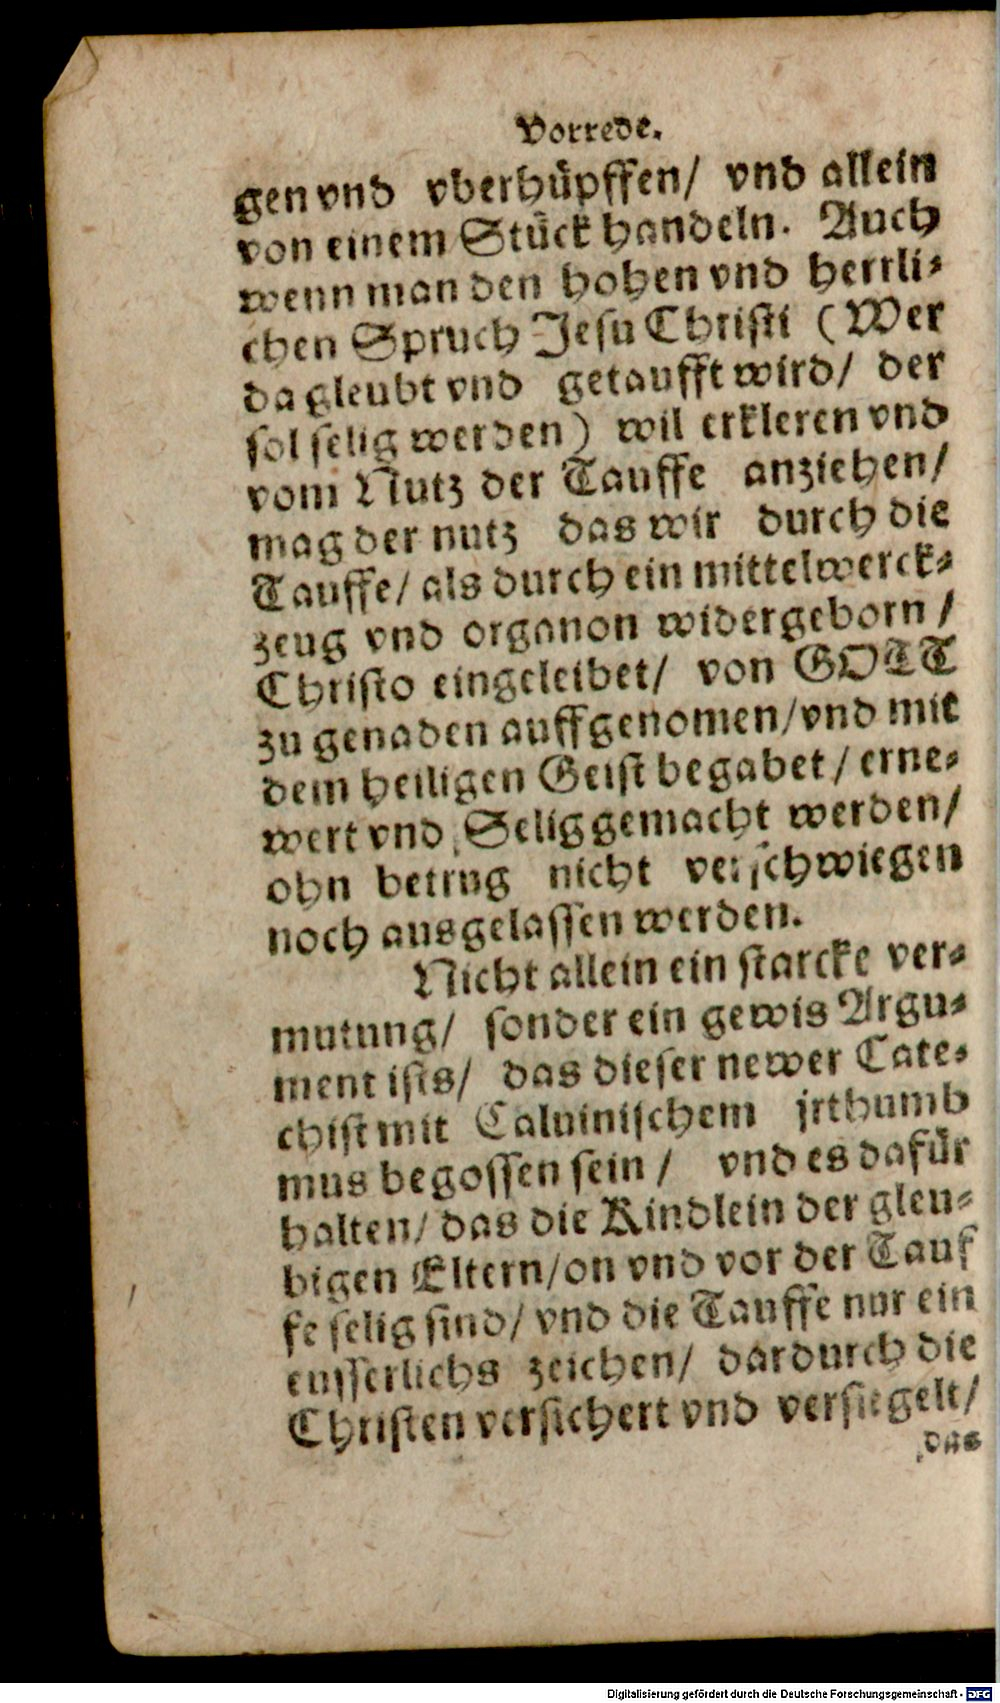 Vorrede.
gen vnd vberhüpffen/ vnd allein
von einem Stück handeln. Auch
wenn man den hohen vnd herrli⸗
chen Spruch Jesu Christi (Wer
da gleubt vnd getaufft wird/ der
sol selig werden) wil erkleren vnd
vom Nutz der Tauffe anziehen/
mag der nutz das wir durch die
Tauffe/ als durch ein mittelwerck⸗
zeug vnd organon widergeborn/
Christo eingeleibet/ von GOTT
zu genaden auffgenomen/vnd mit
dem heiligen Geist begabet/ erne⸗
wert vnd Selig gemacht werden/
ohn betrug nicht verschwiegen
noch ausgelassen werden.
Nicht allein ein starcke ver⸗
mutung/ sonder ein gewis Argu⸗
ment ists/ das dieser newer Cate⸗
chist mit Caluinischem jrthumb
mus begossen sein/ vnd es dafür
halten/ das die Kindlein der gleu⸗
bigen Eltern/on vnd vor der Tauf
fe selig sind/ vnd die Tauffe nur ein
eusserlichs zeichen/ dardurch die
Christen versichert vnd versiegelt/
das
Digitalisierung gefördert durch die Deutsche Forschungsgemeinschaft - DFG